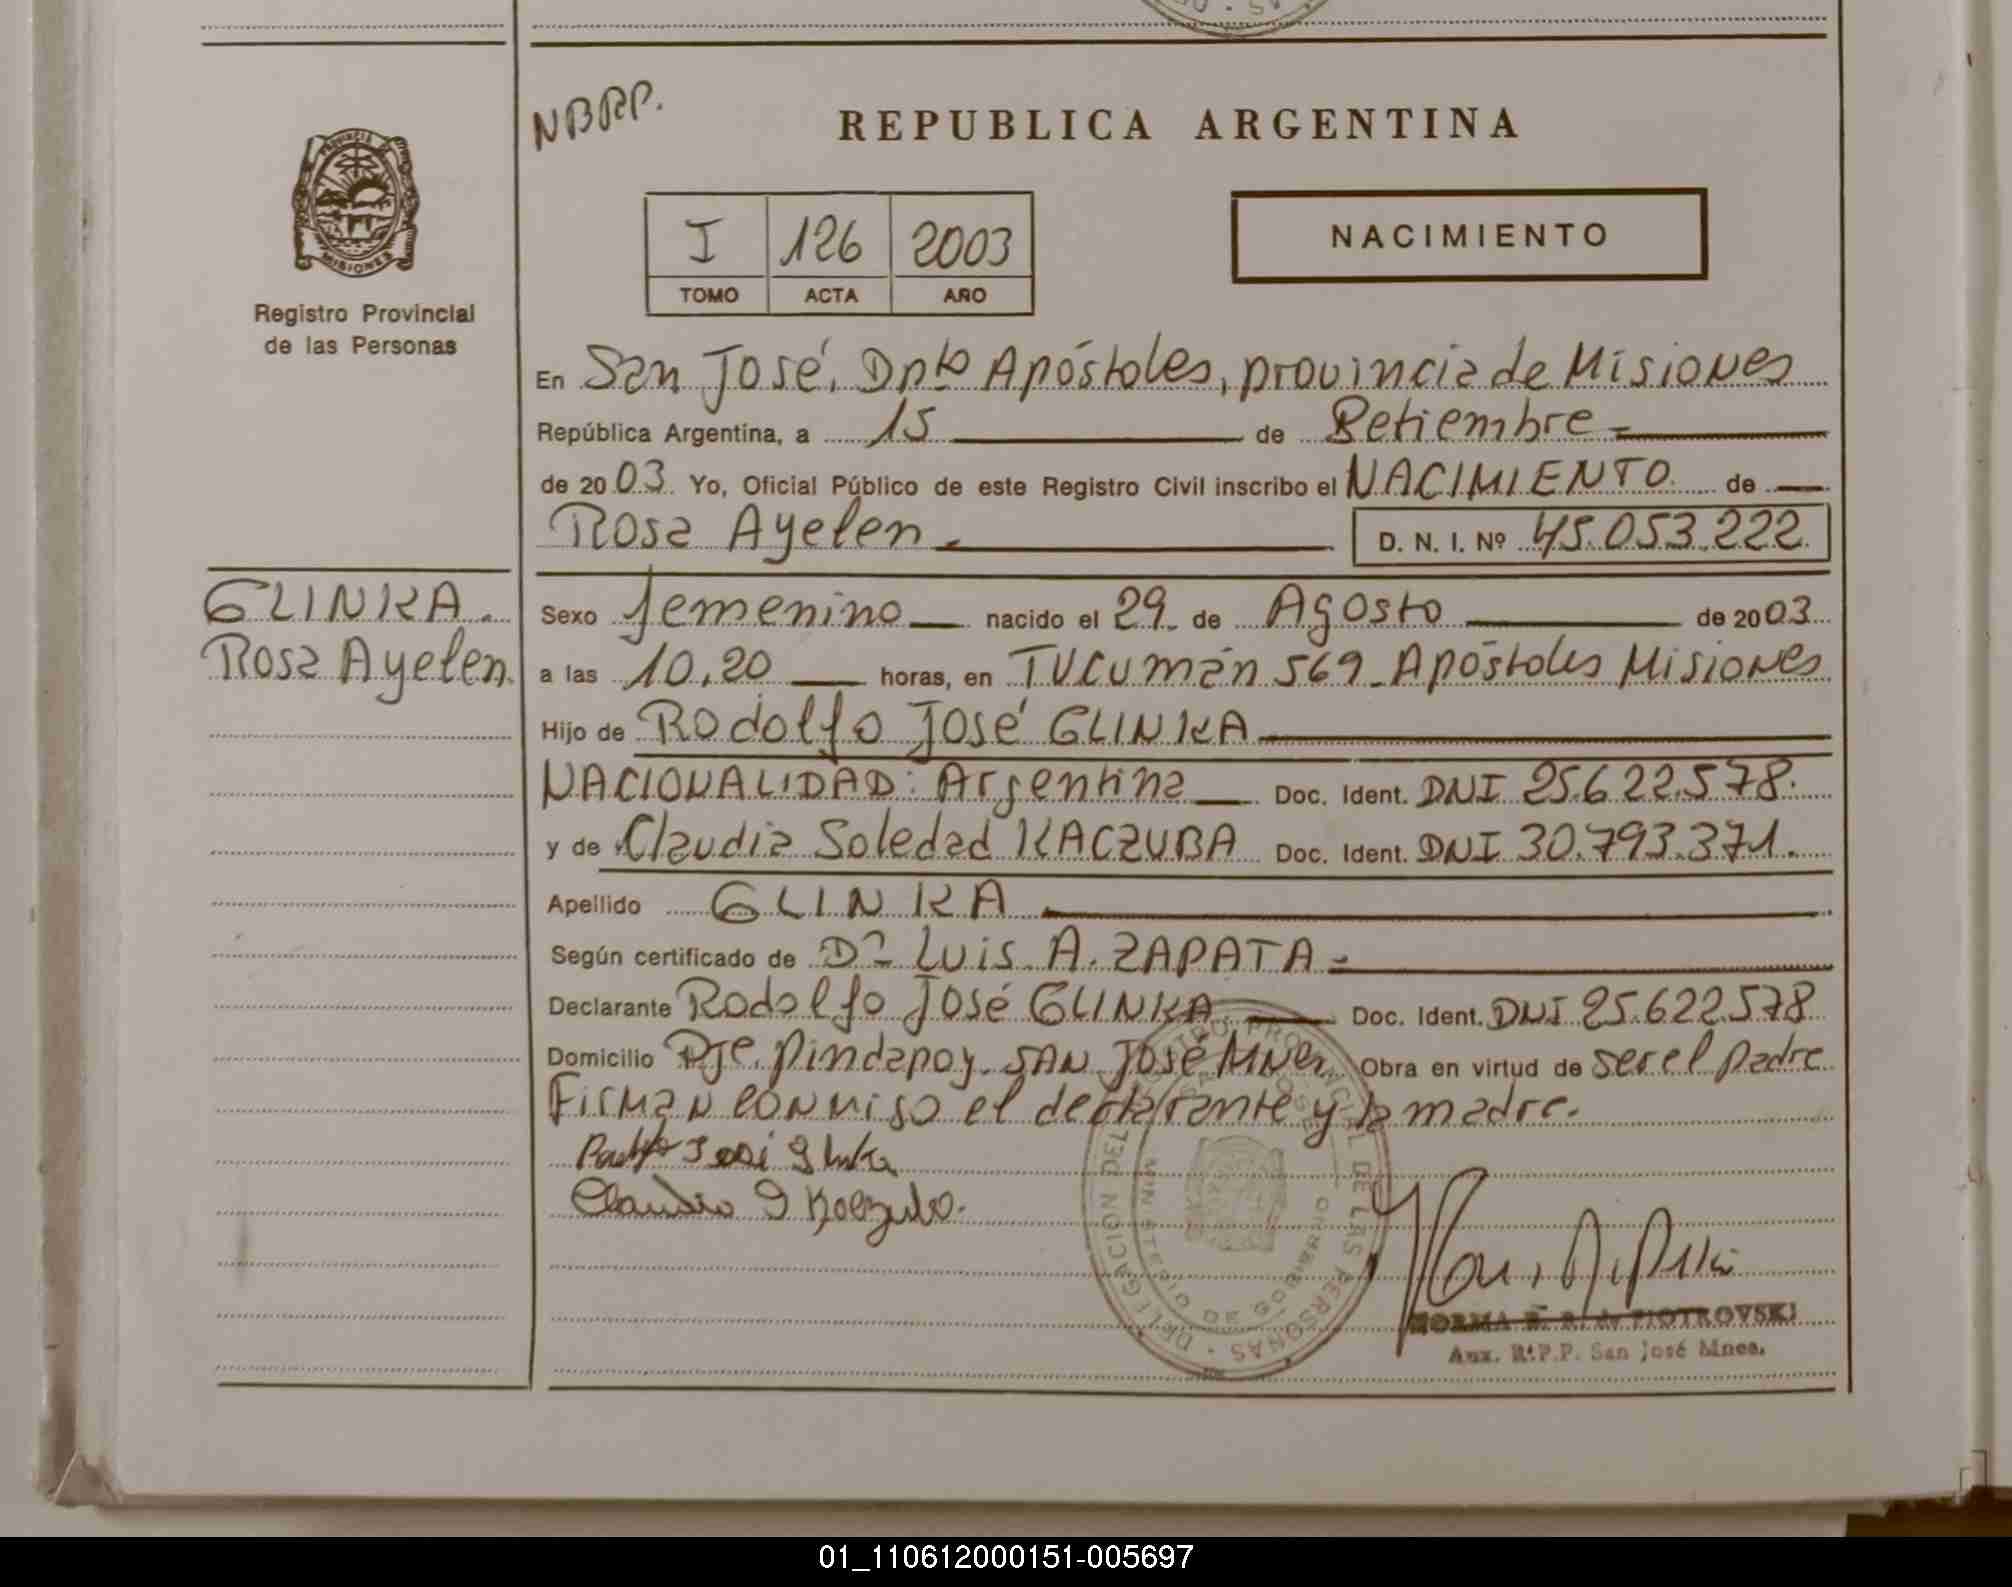 NBRP.
REPUBLICA ARGENTINA
PROVINCIA DE
MISIONES
Registro Provincial
de las Personas
I 126 2003
TOMO ACTA AÑO
NACIMIENTO
En San José, Dpto Apóstoles, provincia de Misiones
República Argentina, a 15 de Setiembre
de 2003. Yo, Oficial Público de este Registro Civil inscribo el NACIMIENTO de
Rosa Ayelen D. N. I. Nº 45.053.222
GLINKA.
Rosa Ayelen.
Sexo femenino nacido el 29 de Agosto de 2003
a las 10,20 horas, en Tucumán 569 - Apóstoles Misiones
Hijo de Rodolfo José GLINKA
NACIONALIDAD: Argentina Doc. Ident. DNI 25.622.578.
y de Claudia Soledad KACZUBA Doc. Ident. DNI 30.793.371.
Apellido GLINKA
Según certificado de Dr Luis A. ZAPATA
Declarante Rodolfo José GLINKA Doc. Ident. DNI 25.622.578
Domicilio Pje. Pindapoy. SAN José Mnes Obra en virtud de ser el padre
Firman conmigo el declarante y la madre.
José Glinka
Claudia S Kaczuba.
DELEGACION DEL REGISTRO PROVINCIAL DE LAS PERSONAS
SAN JOSE
MINISTERIO DE GOBIERNO
NORMA B. R. de PIOTROVSKI
Aux. R.P.P. San José Mnes.
01_110612000151-005697